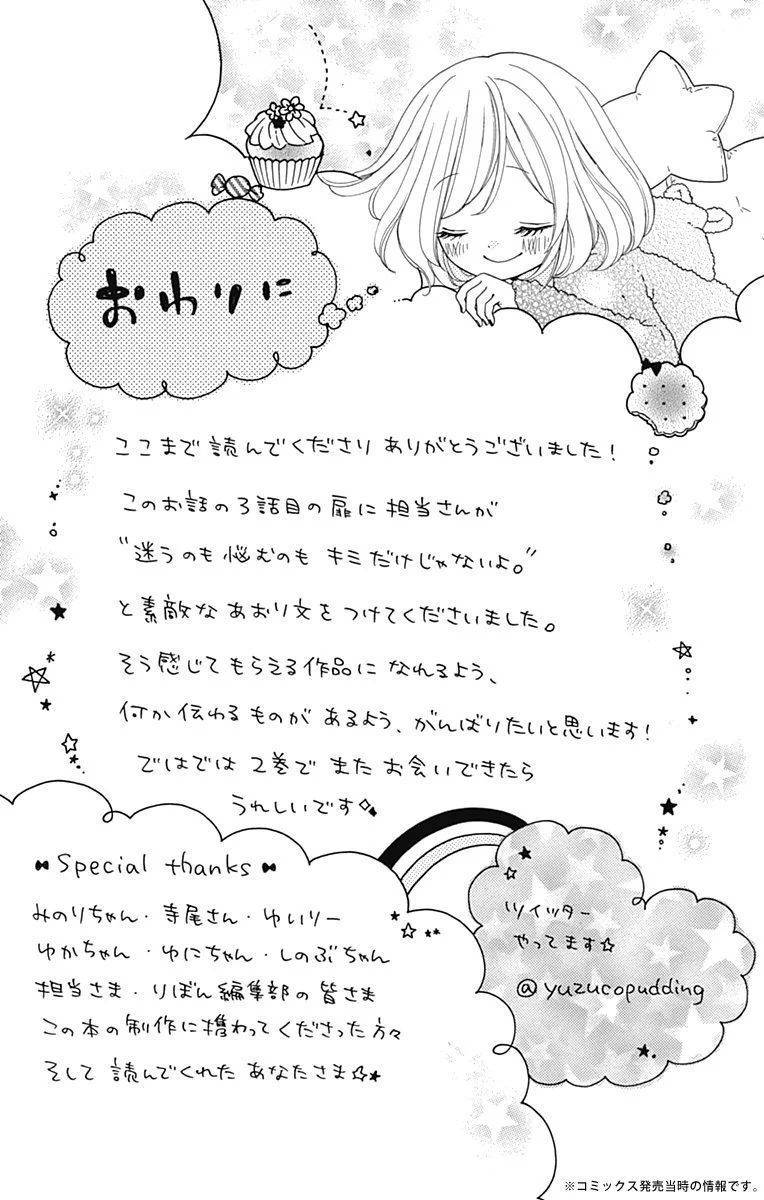 おわりに
ここまで読んでくださり ありがとうございました！
このお話の3話目の扉に担当さんが
"迷うのも悩むのも キミだけじゃないよ。"
と素敵な あおり文を つけてくださいました。
そう感じて もらえる作品に なれるよう、
何か伝わるものが あるよう、がんばりたいと思います！
ではでは 2巻で また お会いできたら
うれしいです
Special thanks
みのりちゃん・寺尾さん・ゆいりー
ゆかちゃん・ゆにちゃん・しのぶちゃん
担当さま・りぼん編集部の皆さま
この本の制作に携わってくださった方々
そして 読んでくれた あなたさま☆★
ツイッター
やってます☆
@yuzucopudding
※コミックス発売当時の情報です。